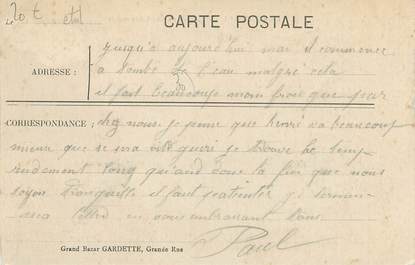 CARTE POSTALE
jusqu'a aujourd'hui mai il commence
ADRESSE :
a tombé de l'eau malgré cela
il fait beaucoup moin froi que par
CORRESPONDANCE :
chez nous je pense que va beaucoup
mieux que se sera vite queri je trouve le temp
rudement long qu'and donc la fin que nous
soyon tranquille il faut patienter je termin
ma lettre en vous embrassant tous
Paul
Grand Bazar GARDETTE, Grande Rue